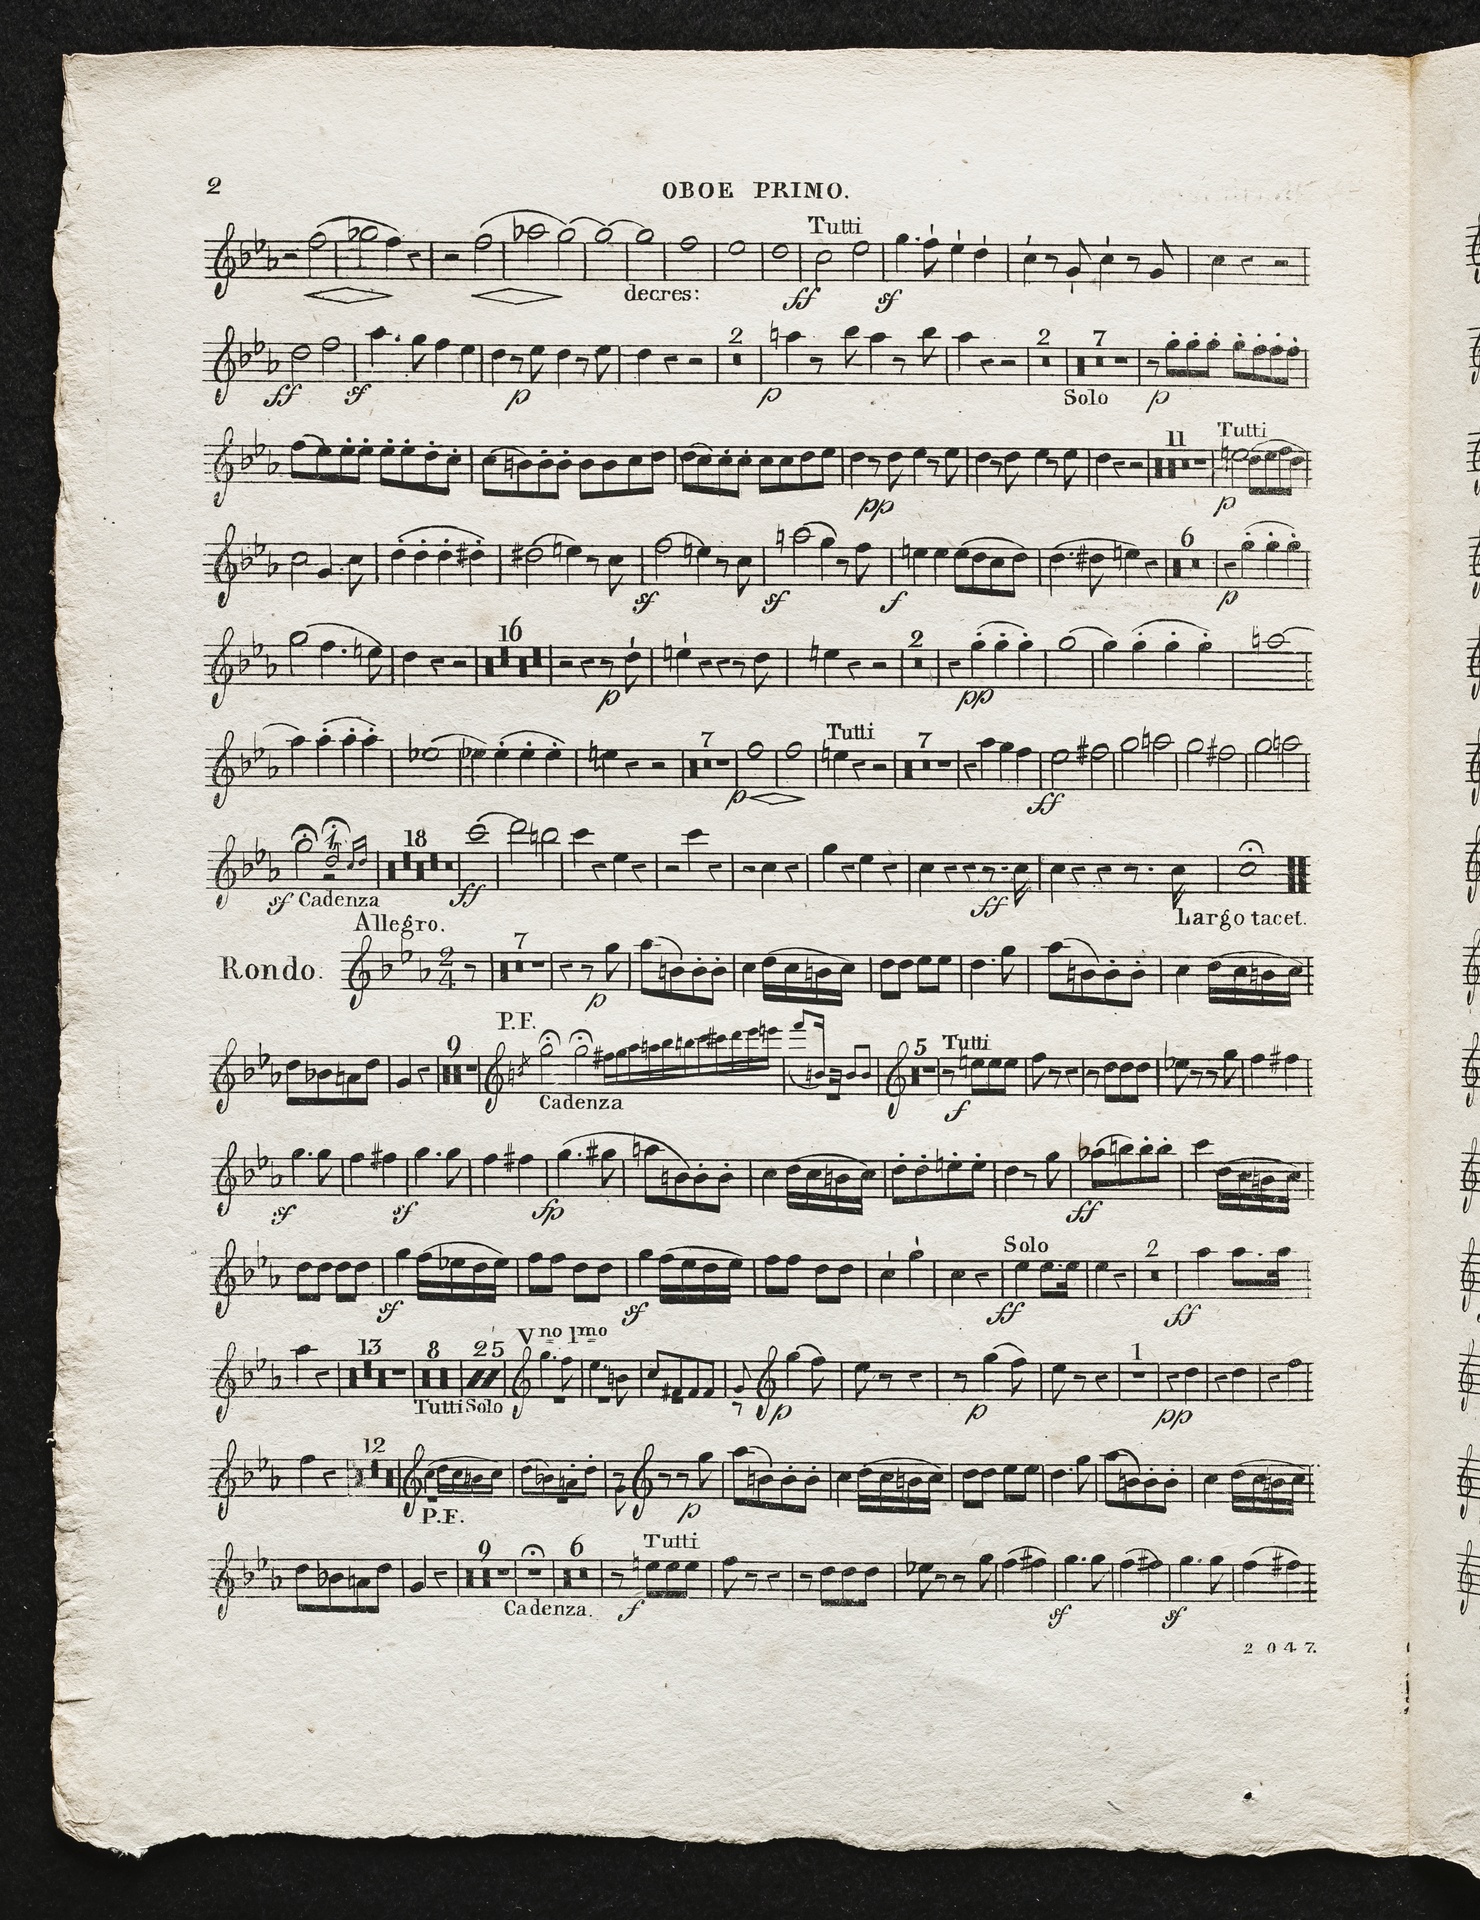 2
OBOE PRIMO.
Tutti
decres: ff sf
2 2 7
ff sf p p Solo p
11 Tutti
pp p
6
sf sf f p
16 2
p pp
7 Tutti 7
p ff
18
sf Cadenza ff ff Largo tacet.
Allegro.
Rondo. 2 4 7
p
P.F.
9 5 Tutti
Cadenza f
sf sf fp ff
Solo 2
sf sf ff ff
13 8 25 Vno 1mo 1
Tutti Solo p p pp
12
P.F. p
9 6 Tutti
Cadenza. f sf sf
2047.